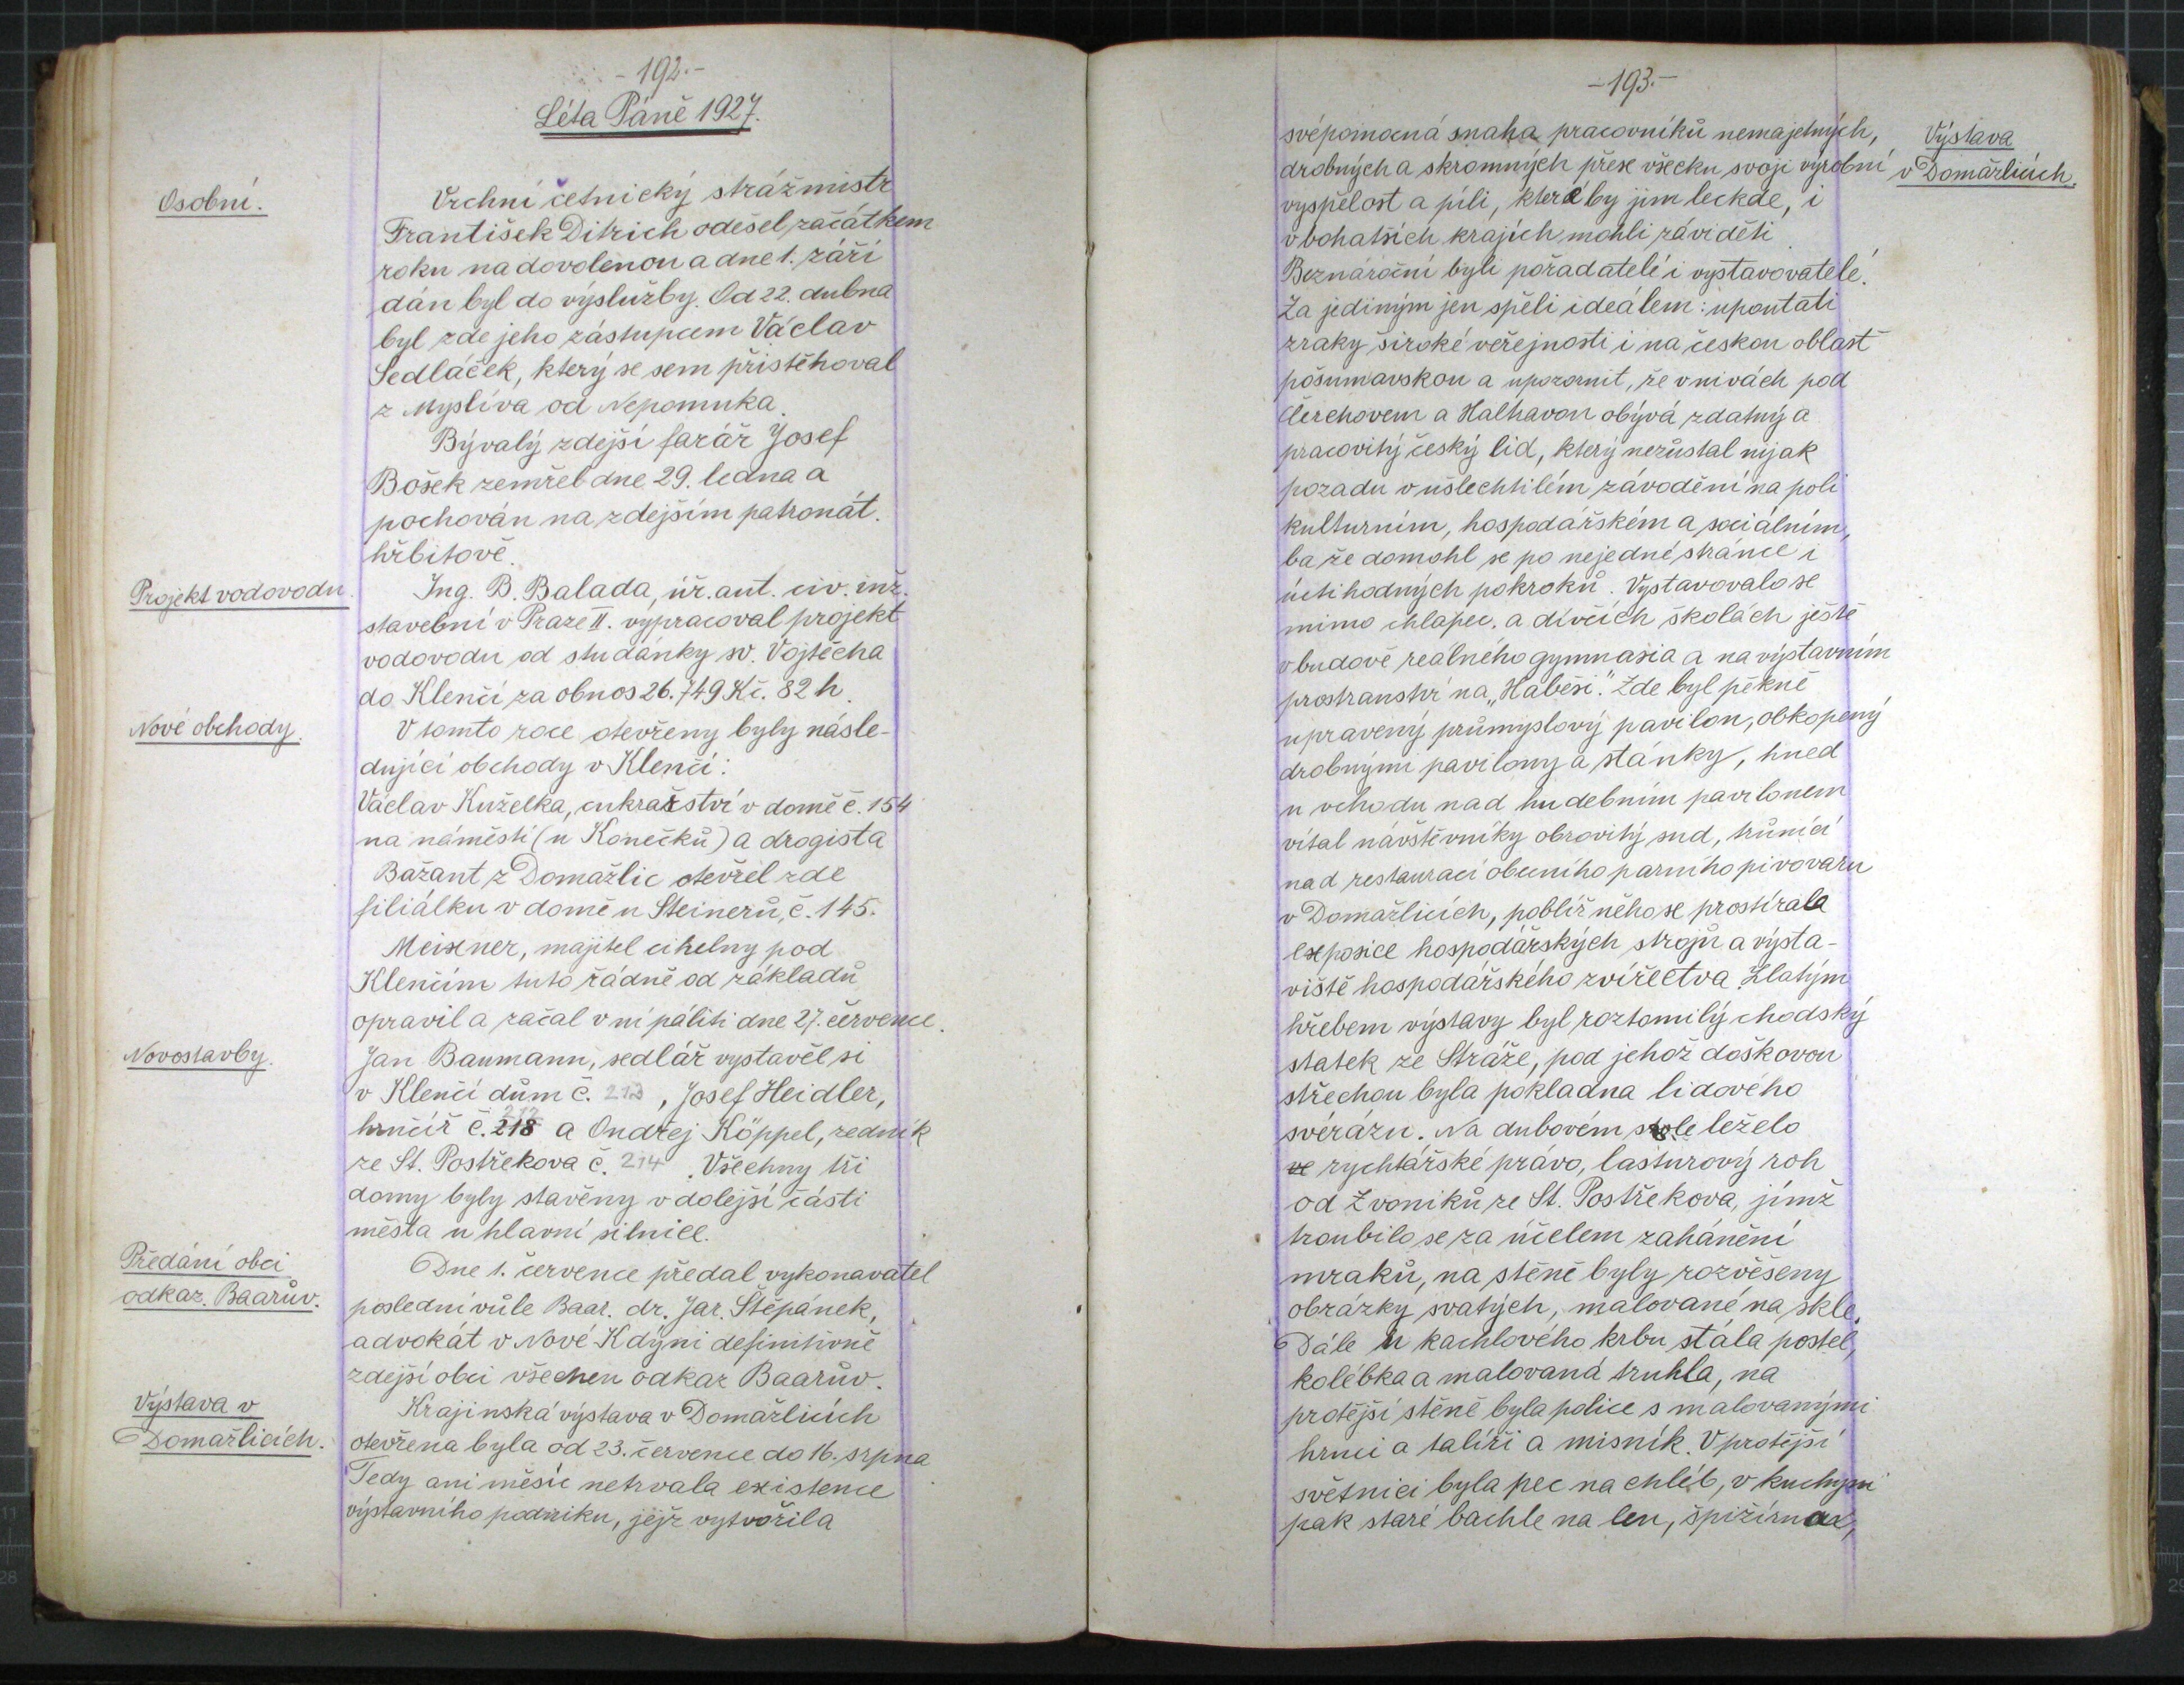 - 192. -
Léta Páně 1927.
Osobní.
Vrchní četnický strážmistr
František Ditrich odešel začátkem
roku na dovolenou a dne 1. září
dán byl do výslužby. Od 22. dubna
byl zde jeho zástupcem Václav
Sedláček, který se sem přistěhoval
z Myslíva od Nepomuka.
Bývalý zdejší farář Josef
Bošek zemřel dne 29. ledna a
pochován na zdejším patronát.
hřbitově.
Projekt vodovodu.
Ing. B. Balada, úř. aut. civ. inž.
stavební v Praze II. vypracoval projekt
vodovodu od studánky sv. Vojtěcha
do Klenčí za obnos 26.749 Kč. 82 h.
Nové obchody.
V tomto roce otevřeny byly násle-
dující obchody v Klenčí:
Václav Kuželka, cukrařství v domě č. 154
na náměstí (u Konečků) a drogista
Bažant z Domažlic otevřel zde
filiálku v domě u Steinerů, č. 145.
Meixner, majitel cihelny pod
Klenčím tuto řádně od základů
opravil a začal v ní páliti dne 27. července.
Novostavby.
Jan Baumann, sedlář vystavěl si
v Klenčí dům č. 213, Josef Heidler,
hrnčíř č. 218 212 a Ondřej Köppel, zedník
ze St. Postřekova č. 214. Všechny tři
domy byly stavěny v dolejší části
města u hlavní silnice.
Předání obci
odkaz. Baarův.
Dne 1. července předal vykonavatel
poslední vůle Baar. dr. Jar. Štěpánek,
advokát v Nové Kdýni definitivně
zdejší obci všechen odkaz Baarův.
Výstava v
Domažlicích.
Krajinská výstava v Domažlicích
otevřena byla od 23. července do 16. srpna.
Tedy ani měsíc netrvala existence
výstavního podniku, jejž vytvořila
- 193. -
Výstava
v Domažlicích.
svépomocná snaha pracovníků nemajetných,
drobných a skromných přese všecku svoji výrobní
vyspělost a píli, které by jim leckde, i
v bohatších krajích mohli záviděti.
Beznároční byli pořadatelé i vystavovatelé.
Za jediným jen spěli ideálem: upoutati
zraky široké veřejnosti i na českou oblast
pošumavskou a upozornit, že v nivách pod
Čerchovem a Haltravou obývá zdatný a
pracovitý český lid, který nezůstal nijak
pozadu v ušlechtilém závodění na poli
kulturním, hospodářském a sociálním,
ba že domohl se po nejedné stránce i
úctihodných pokroků. Vystavovalo se
mimo chlapec. a dívčích školách ještě
v budově reálného gymnasia a na výstavním
prostranství na „Habeši". Zde byl pěkně
upravený průmyslový pavilon, obkopený
drobnými pavilony a stánky, hned
u vchodu nad hudebním pavilonem
vítal návštěvníky obrovitý sud, trůnící
nad restaurací obecního parního pivovaru
v Domažlicích, poblíž něho se prostírala
exposice hospodářských strojů a výsta-
viště hospodářského zvířectva. Zlatým
hřebem výstavy byl roztomilý chodský
statek ze Stráže, pod jehož doškovou
střechou byla pokladna lidového
svérázu. Na dubovém stole leželo
ve rychtářské právo, lasturový roh
od Zvoniků ze St. Postřekova, jímž
troubilo se za účelem zahánění
mraků, na stěně byly rozvěšeny
obrázky svatých, malované na skle.
Dále u kachlového krbu stála postel,
kolébka a malovaná truhla, na
protější stěně byla police s malovanými
hrnci a talíři a misník. V protější
světnici byla pec na chléb, v kuchyni
pak staré bachle na len, špižírna,